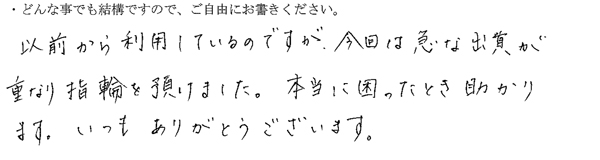 ・どんな事でも結構ですので、ご自由にお書きください。
以前から利用しているのですが、今回は急な出費が
重なり指輪を預けました。本当に困ったとき助かり
ます。いつもありがとうございます。